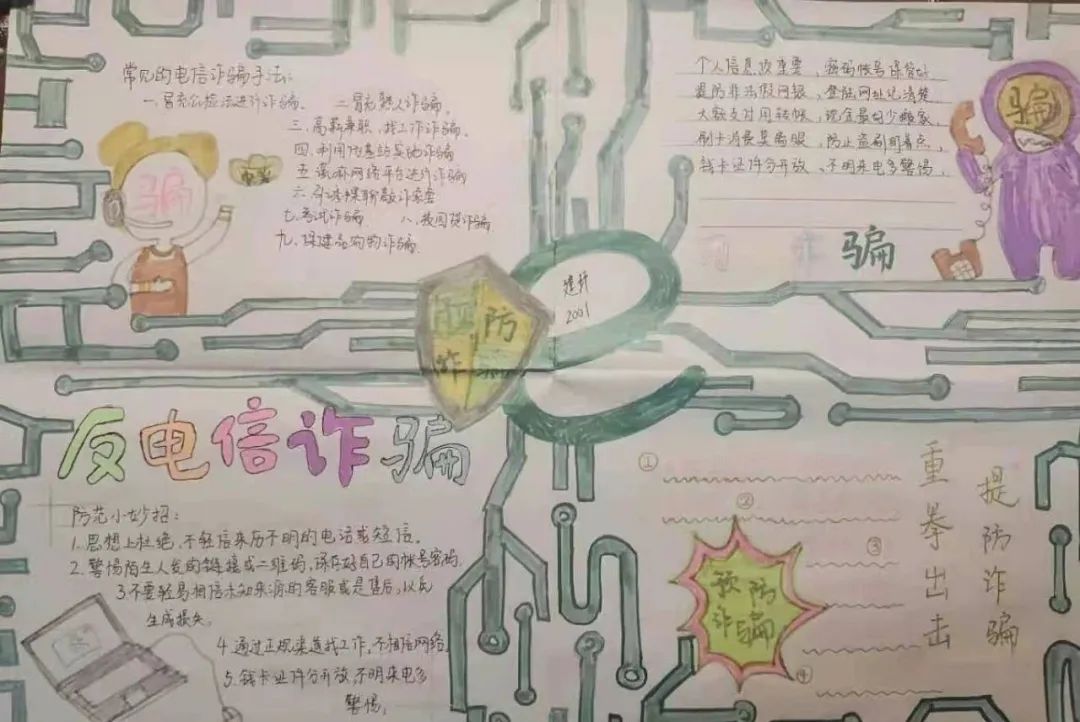 常见的电信诈骗手法:
一.冒充公检法进行诈骗. 二.冒充熟人诈骗.
三.高薪兼职,找工作诈骗.
四.利用伪基站实施诈骗
五.
网络平台进行诈骗
六.
裸聊敲诈
七.考试诈骗 八.
诈骗
九.保健品购物诈骗.
骗
个人信息很重要,密码帐号保管好
提防非法假网银,登陆网址记清楚
大额支付用转帐,现金最好少搬家,
刷卡消费莫离眼,防止盗刷明着点,
钱卡证件分开放,不明来电多警惕,
骗
诈骗
防
诈
2001
反电信诈骗
防范小妙招:
1.思想上杜绝,不轻信来历不明的电话或短信.
2.警惕陌生人发的链接或二维码,保存好自己的帐号密码.
3.不要轻易相信未知来源的客服或是售后,以免
生成损失.
4.通过正规渠道找工作,不相信网络.
5.钱卡证件分开放,不明来电多
警惕,
①
②
③
④
预防
诈骗
重拳出击
提防诈骗